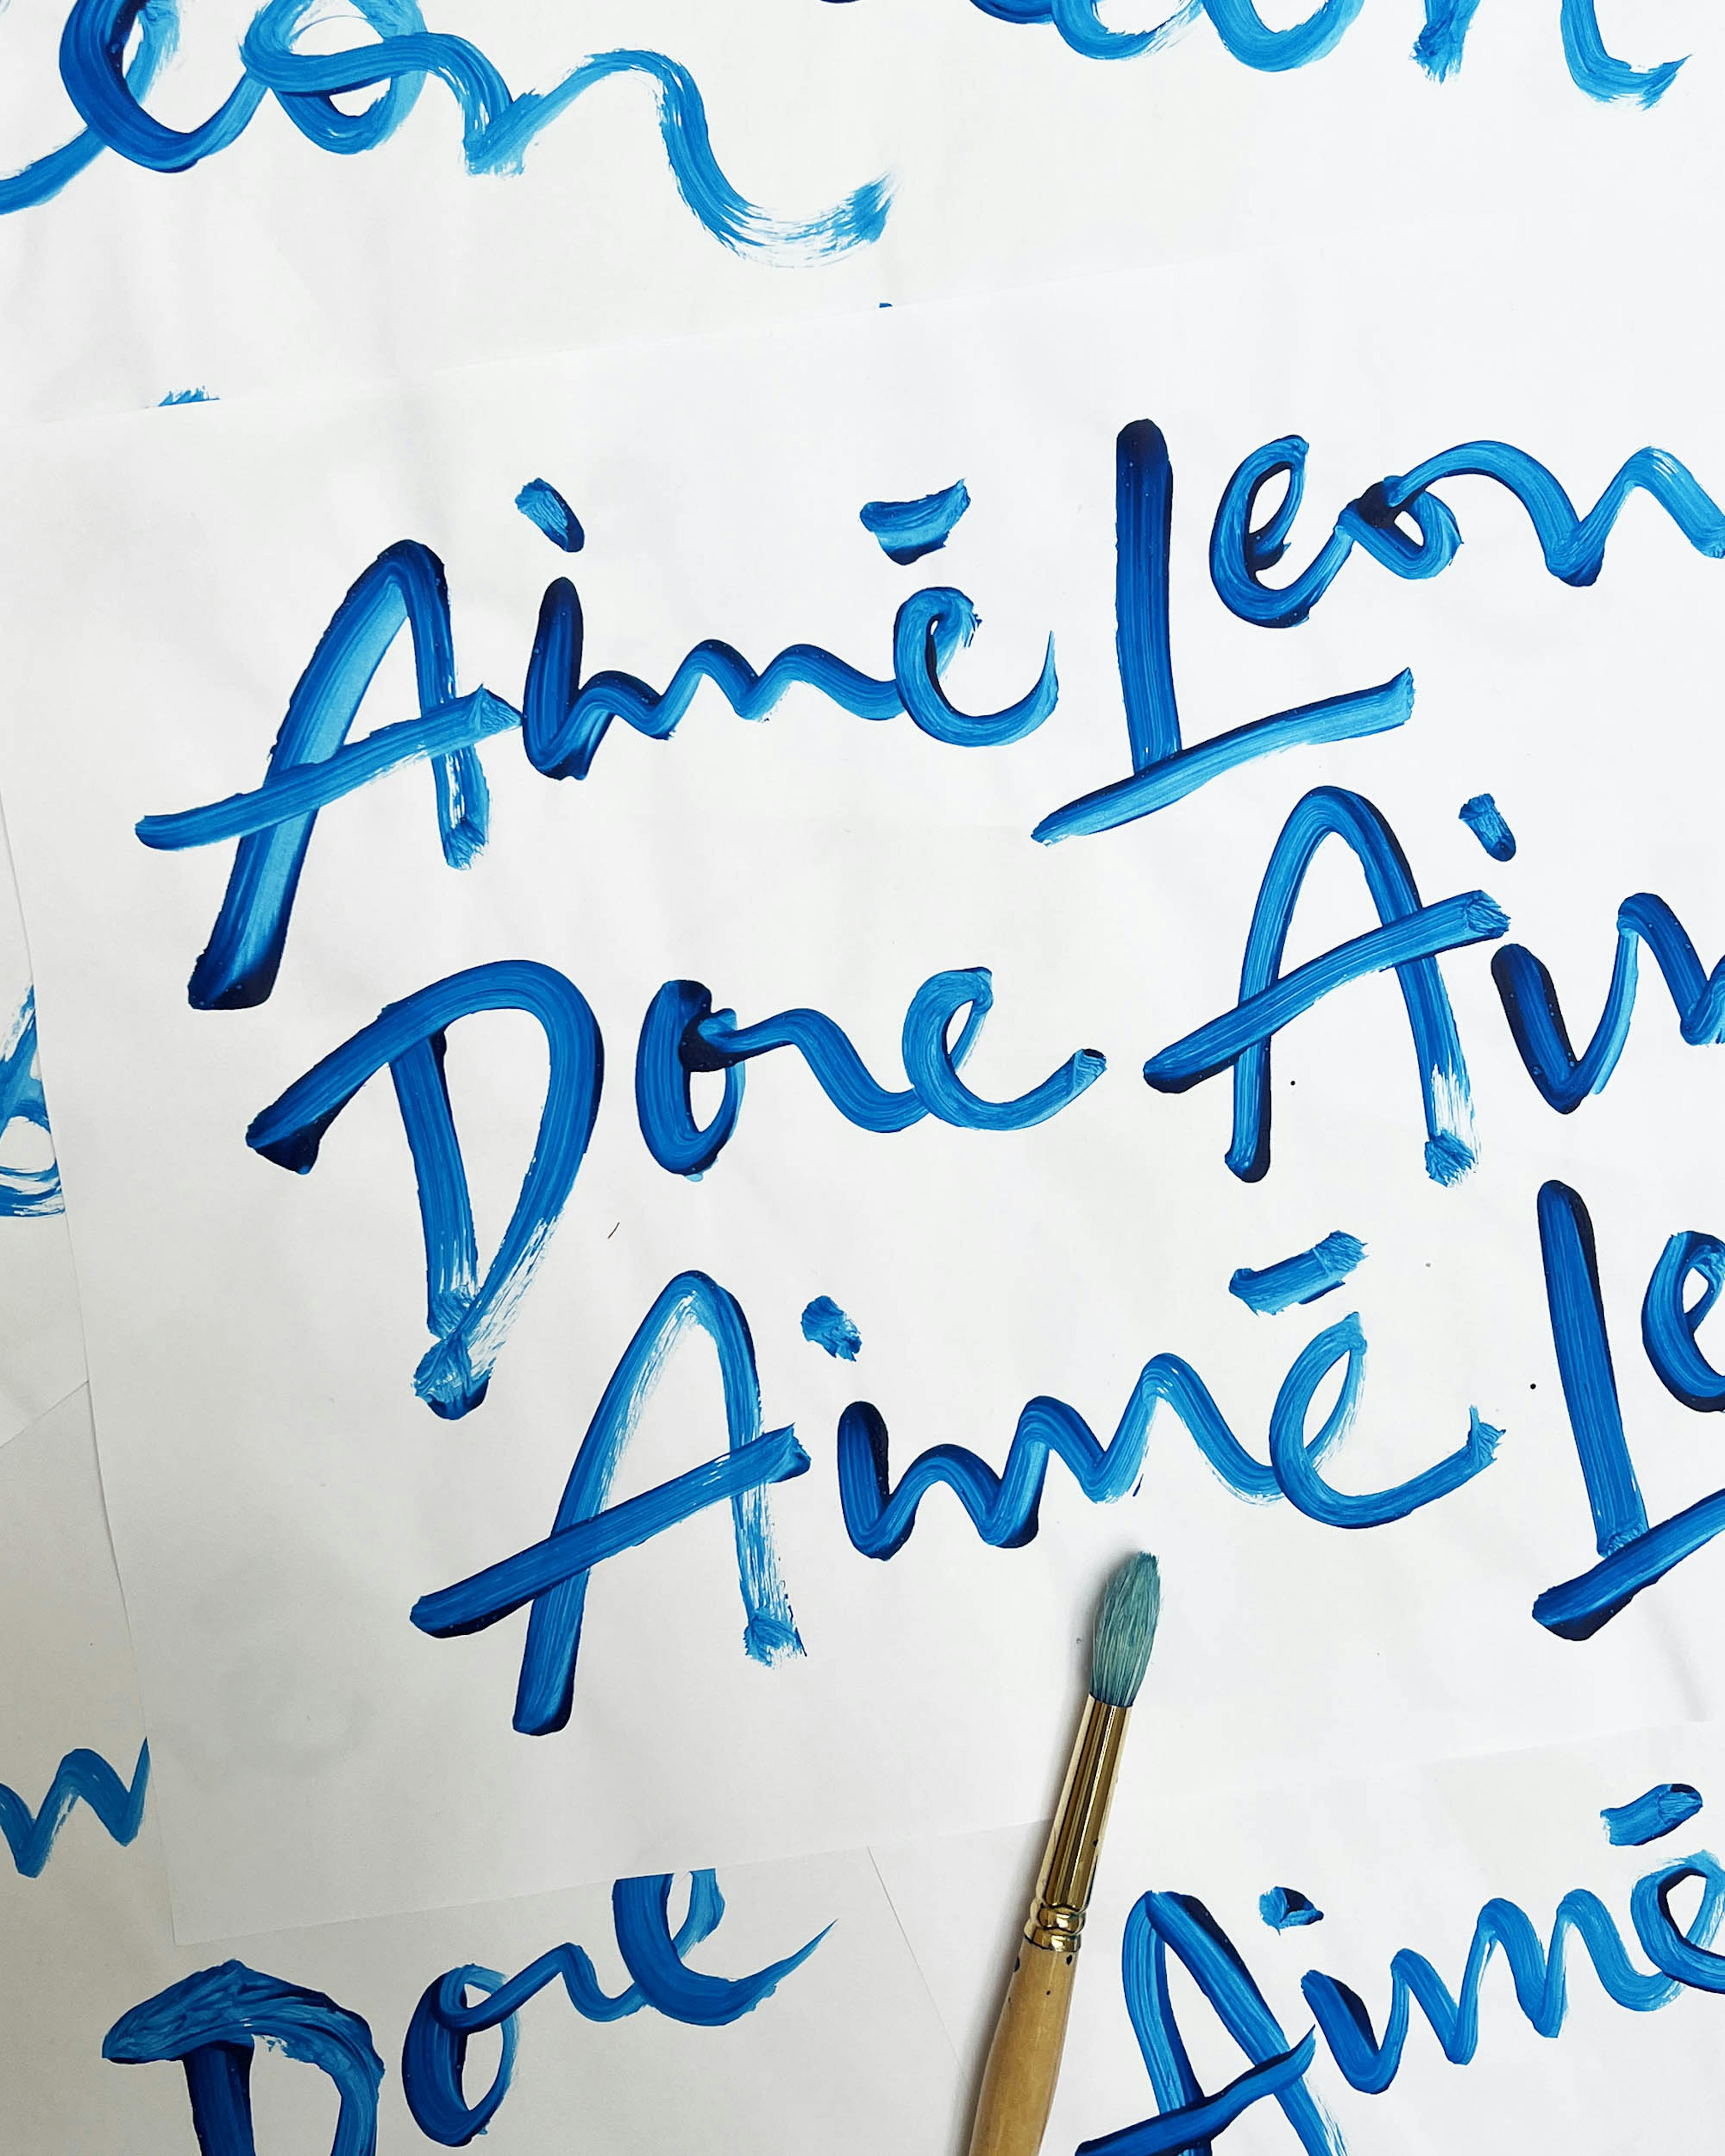 Aimé Leon
Dore Aim
Aimé Le
Dore Aimé